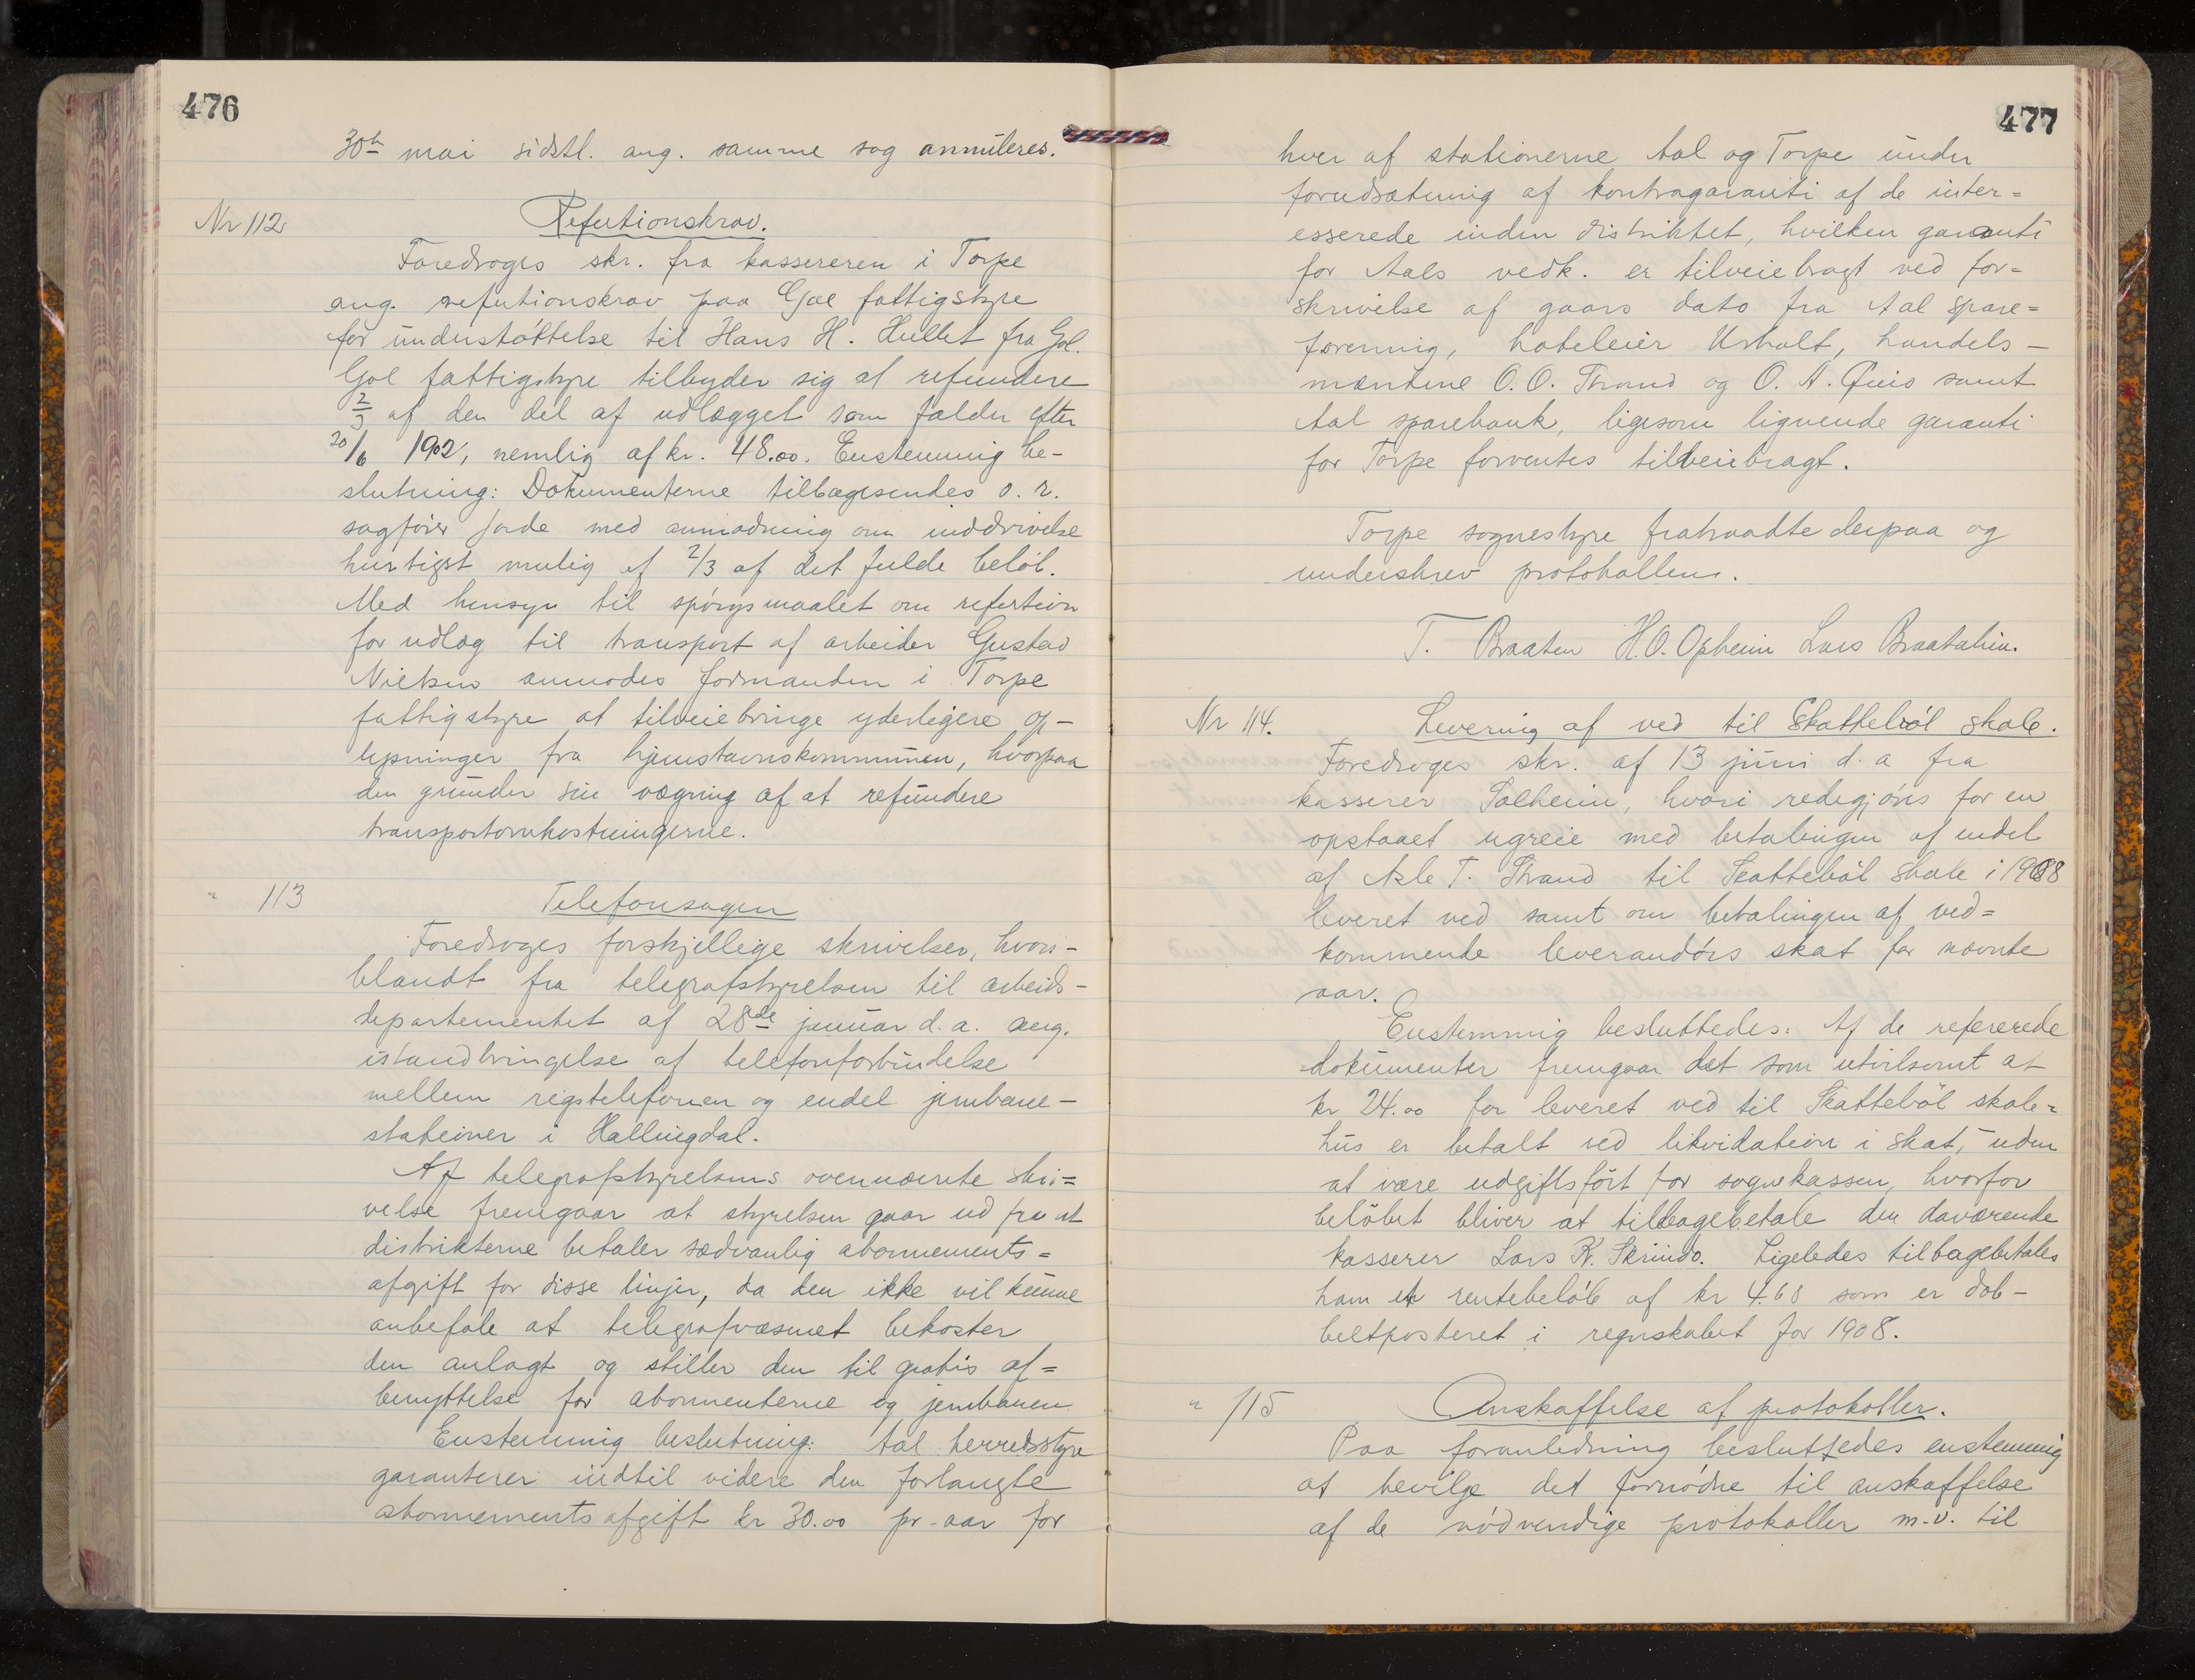 476
30te mai sidstl. ang. samme sag annulleres.
Nr 112
Refutionskrav.
Foredroges skr. fra kassereren i Torpe
ang. refutionskrav paa Gol fattigstyre
for understøttelse til Hans H. Hullet fra Gol.
Gol fattigstyre tilbyder sig at refundere
2/3 af den del af udlægget som falder efter
20/6 1902, nemlig af kr. 48.00. Enstemmig be-
slutning: Dokumenterne tilbagesendes o. r.
sagfører Jorde med anmodning om inddrivelse
hurtigst mulig af 2/3 af det fulde beløb.
Med hensyn til spørgsmaalet om refution
for udlæg til transport af arbeider Gustav
Nielsen anmodes formanden i Torpe
fattigstyre at tilveiebringe yderligere op-
lysninger fra hjemstavnskommunen, hvorpaa
den grunder sin vægring af at refundere
transportomkostningerne.
" 113
Telefonsagen
Foredroges forskjellige skrivelser, hvori-
blandt fra telegrafstyrelsen til arbeids-
departementet af 28de januar d. a. ang.
istandbringelse af telefonforbindelse
mellem rigstelefonen og endel jernbane-
stationer i Hallingdal.
Af telegrafstyrelsens ovennævnte skri=
velse fremgaar at styrelsen gaar ud fra at
distrikterne betaler sædvanlig abonnements=
afgift for disse linjer, da den ikke vil kunne
anbefale at telegrafvæsenet bekoster
den anlagt og stiller den til gratis af=
benyttelse for abonnenterne og jernbanen
Enstemmig beslutning: Aal herredsstyre
garanterer indtil videre den forlangte
abonnementsafgift kr 30.00 pr. aar for
477
hver af stationerne Aal og Torpe under
forudsætning af kontragaranti af de inter=
esserede inden distriktet, hvilken garanti
for Aals vedk. er tilveiebragt ved for=
skrivelse af gaars dato fra Aal spare=
forening, hoteleier Urholt, handels-
mændene O. O. Strand og O. A. samt
Aal sparebank, ligesom lignende garanti
for Torpe forventes tilveiebragt.
Torpe sognestyre fratraadte derpaa og
underskrev protokollen.
T. Braaten H.O. Opheim Lars Braatalien.
Nr 114.
Levering af ved til Skattebøl skole.
Foredroges skr. af 13 juni d. a fra
kasserer Solheim, hvori redegjøres for en
opstaaet ugreie med betalingen af endel
af Asle T. Strand til Skattebøl skole i 1908
leveret ved samt om betalingen af ved=
kommende leverandørs skat for nævnte
aar.
Enstemmig besluttedes: Af de refererede
dokumenter fremgaar det som utvilsomt at
kr 24.00 for leveret ved til Skattebøl skole=
hus er betalt ved likvidation i skat, uden
at være udgiftsført for sognekassen, hvorfor
beløbet bliver at tilbagebetale den daværende
kasserer Lars K. Skrindo. Ligeledes tilbagebetales
ham et rentebeløb af kr 4.60 som er dob-
beltposteret i regnskabet for 1908.
" 115
Anskaffelse af protokoller.
Paa foranledning besluttedes enstemmig
at bevilge det fornødne til anskaffelse
af de nødvendige protokoller m.v. til